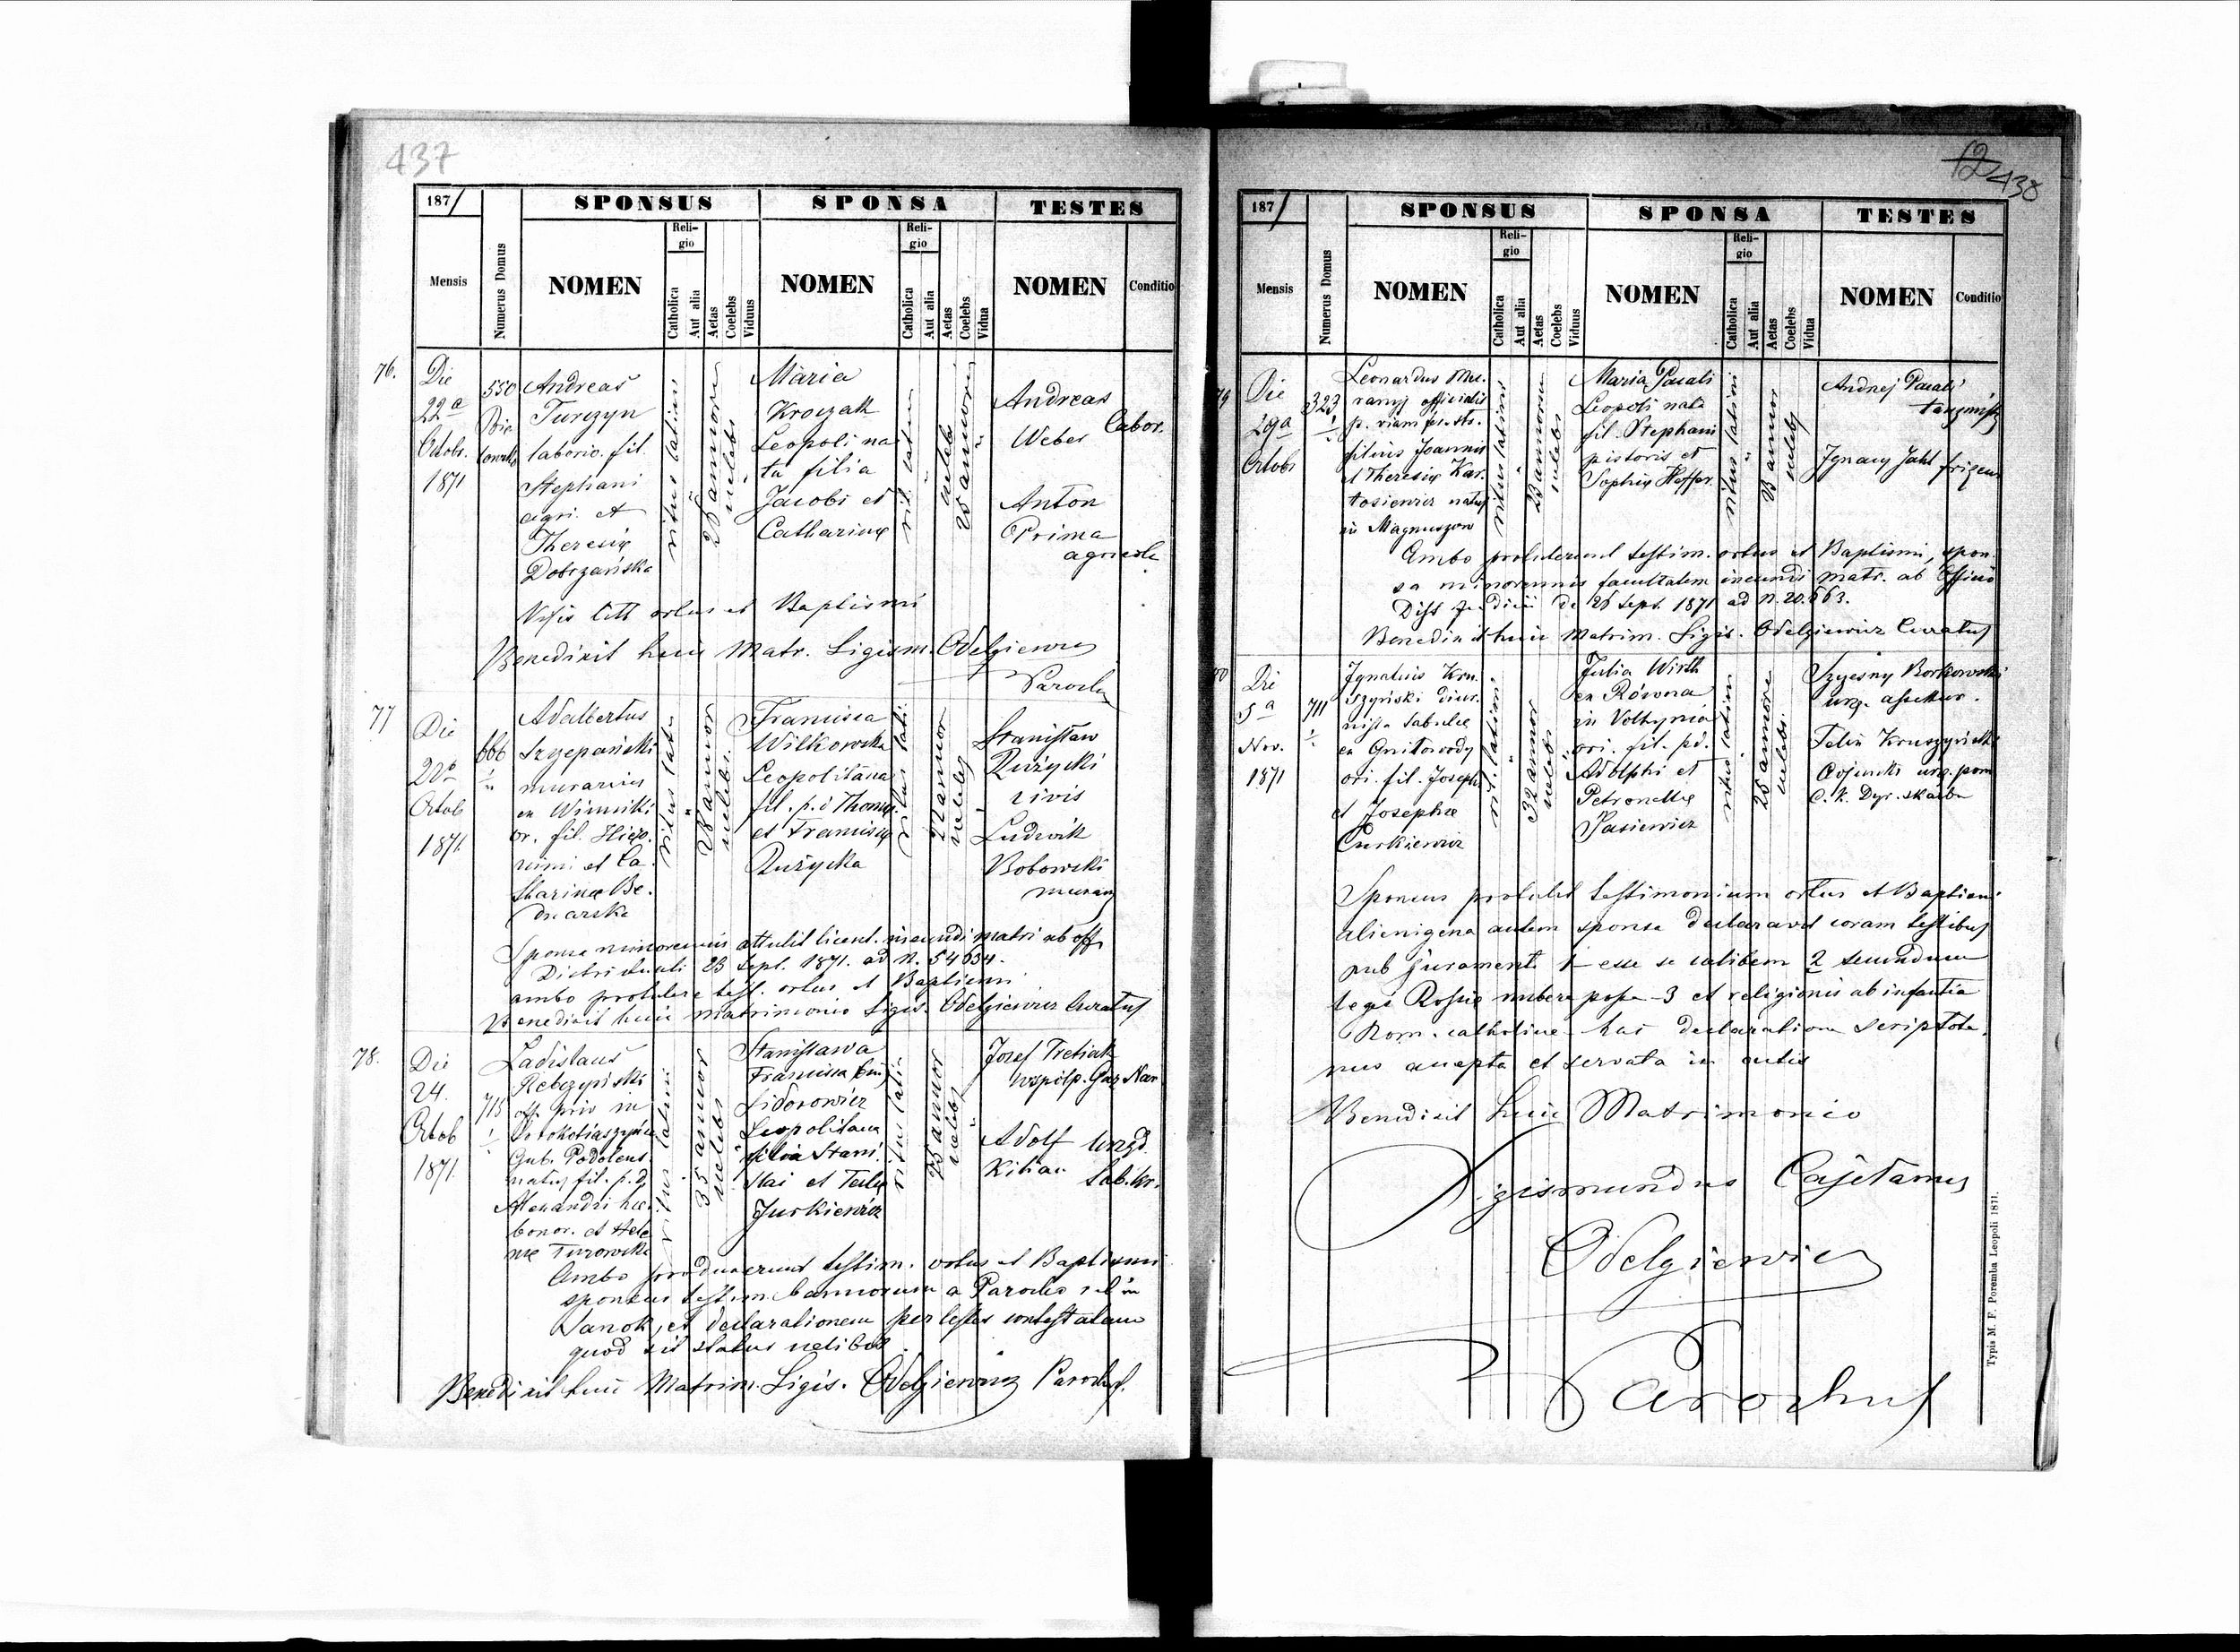 437
187/
SPONSUS
SPONSA
TESTES
Mensis
Numerus Domus
NOMEN
Reli-
gio
Catholica
Aut alia
Aetas
Coelebs
Viduus
NOMEN
Reli-
gio
Catholica
Aut alia
Aetas
Coelebs
Vidua
NOMEN
Conditio
76.
Die
22a
Octobr.
1871
550
Andreas
Turczyn
laborio. fil.
Stephani
agri. et
Theresiæ
Dobrzańska
ritus latini
annorum
coelebs
Maria
Kroczak
Leopoli na
ta filia
Jacobi et
Catharinæ
rit. latini
coelebs
25 annorum
Andreas
Weber
labor.
Anton
Prima
agricola
Visis litt ortus et Baptismi
Benedixit huic Matr. Sigism. Odelgiewicz
Parochus
77
Die
22a
Octob
1871
666
Adalbertus
Szczepański
murarius
ex Winniki
or. fil. Hiero.
nimi et Ca
tharinæ Be.
dnarska
ritus lati.
28 annor
coelebs
Francisca
Wilkowska
Leopolitana
fil. p. d Thomæ
et Franciscæ
Rużycka
ritus lati.
22 annor
coelebs
Stanisław
Rużycki
civis
Ludwik
Bobowski
murarz
Sponsa minorennis attulit licent. ineundi matri ab off.
Districtuali 23 Sept. 1871. ad N. 54634.
ambo protulere test. ortus et Baptismi
Benedixit huic matrimonio Sigis. Odelgiewicz Curatus
78.
Die
24.
Octob
1871.
715
Ladislaus
Rebczyński
off. priv in
Gub. Podolens.
natus fil. p. d
Alexandri hær.
bonor. et Hele
næ Turowska
ritus latini
35 annor
coelebs
Stanisława
Francisca
Sidorowicz
Leopolitana
filia Stani.
slai et Teclæ
Jurkiewicz
ritus latin
annor
coelebs
Josef Tretiak
wspólp. Gaz Nar
Adolf urzęd.
Kilian tab. kr.
Ambo produxerunt testim. ortus et Baptismi
sponsus testim. bannorum a Parocho r. l in
Sanok, et declarationem per testes contestatam
quod sit status coelibes
Benedixit huic Matrim. Sigis. Odelgiewicz Parochus.
12 438
187/
SPONSUS
SPONSA
TESTES
Mensis
Numerus Domus
NOMEN
Reli-
gio
Catholica
Aut alia
Aetas
Coelebs
Viduus
NOMEN
Reli-
gio
Catholica
Aut alia
Aetas
Coelebs
Vidua
NOMEN
Conditio
79
Die
29a
Octobr
323
Leonardus
officialis
p. viam fer.
filius Joannis
et Theresiæ Kar.
tosiewicz natus
in Magnuszow
ritus latini
annorum
coelebs
Maria
Leopoli nata
fil. Stephani
pistoris et
Sophiæ Heffer.
ritus latini
annor
coelebs
Andrzej
Ignacy Jahl
Ambo protulerunt testim. ortus et Baptismi, spon.
sa minorennis facultatem ineundi matr. ab Officio
Dist Judicii de 26 Sept. 1871 ad N. 20.663.
Benedixit huic Matrim. Sigis. Odelgiewicz Curatus
80
Die
5a
Nov.
1871
711
Ignatius Kru.
szyński diur.
nista tabulæ
ex Gniłowody
ori. fil. Josephi
et Josephæ
Curkiewicz
rit. latini.
32 annor
coelebs
Julia Wirth
ex Równa
in Volhynia
ori. fil. pd.
Adolphi et
Petronellæ
Pasiewicz
ritus latini
25 annor
coelebs
Szczęsny Borkowski
urz. assekur.
Felix Kruszyński
Adjunkt urz. pom
C. k. Dyr. skarbu
Sponsus protulit testimonium ortus et Baptismi
alienigena autem sponsa declaravit coram testibus
sub juramenti 1 esse se coelibem 2 secundum
leges Rossiæ nubere posse 3 et religionis ab infantia
Rom. catholicæ hac declaratione scriptote.
nus accepta et servata in actis
Benedixit huic Matrimonio
Sigismundus Cajetanus
Odelgiewicz
Parochus
Typis M. F. Poremba Leopoli 1871.